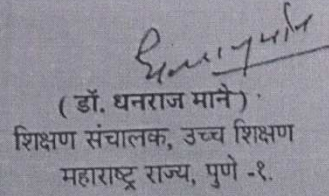 ( डॉ. धनराज माने )
शिक्षण संचालक, उच्च शिक्षण
महाराष्ट्र राज्य, पुणे -१.